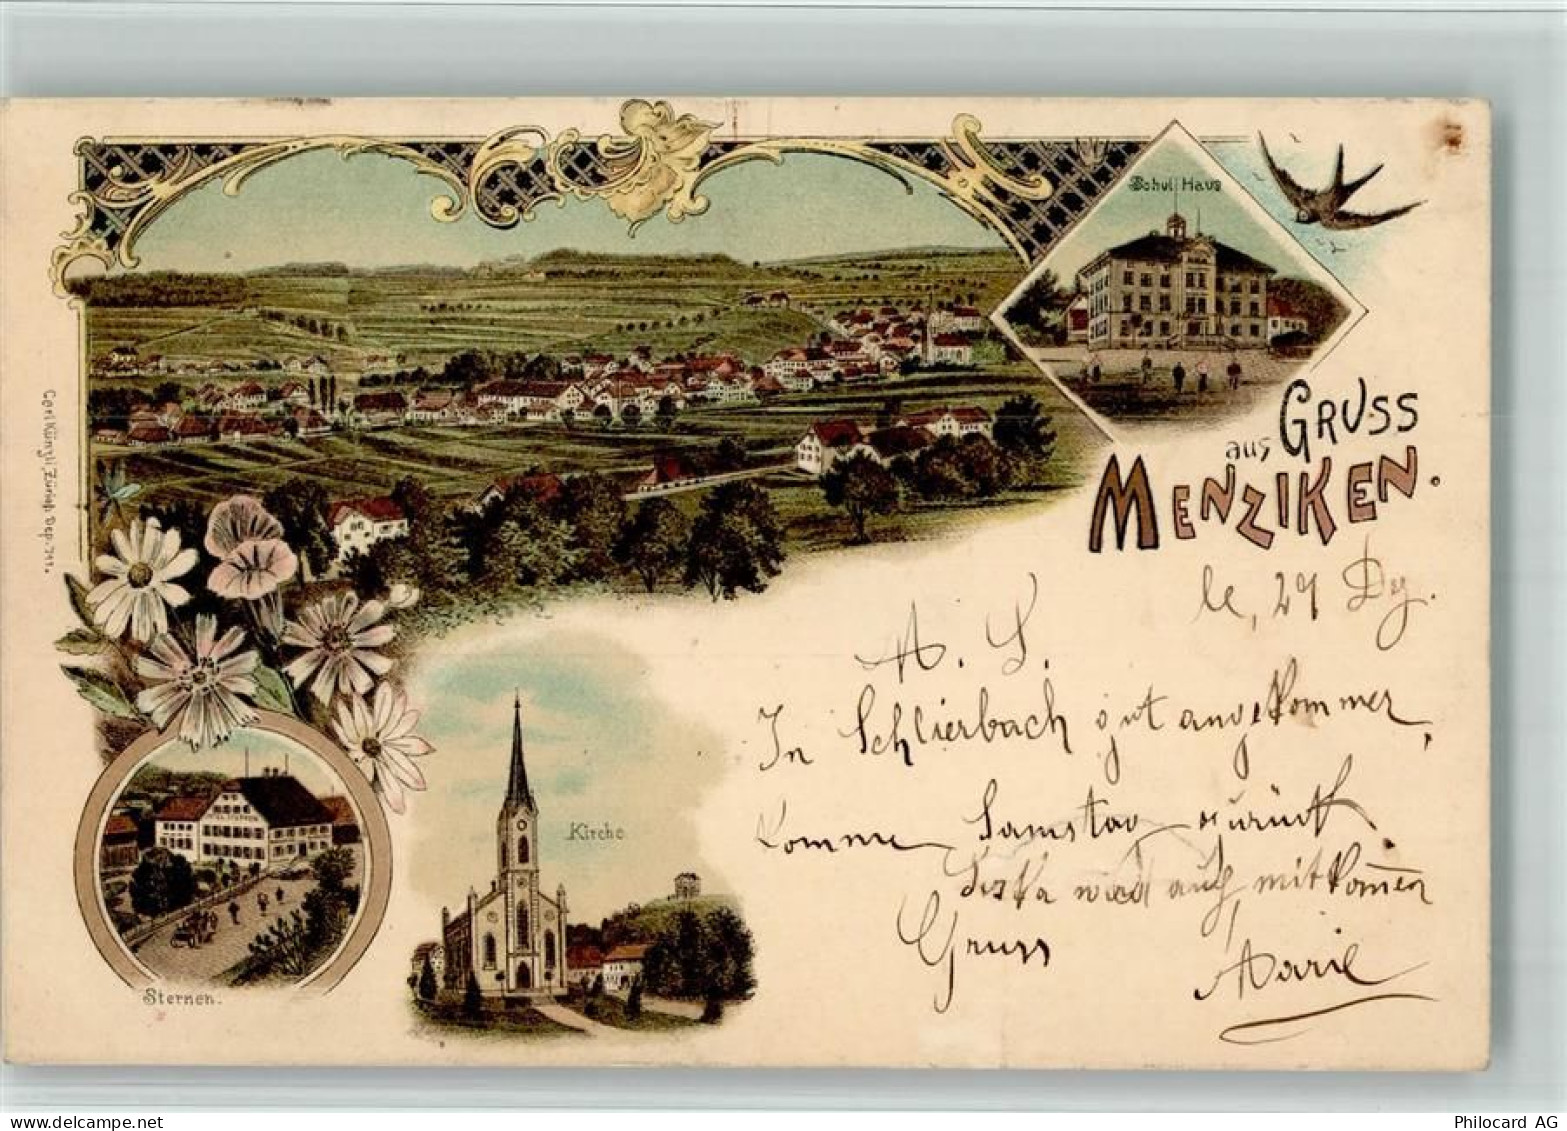 Schul Haus
GRUSS
aus
MENZIKEN.
le, 29 Dz.
A. S.
In Schlierbach gut angekommen,
komme Samstag zurück
wird auch mitkommen
Gruss
Marie
Kirche
Sternen.
Carl Künzli, Zürich, Dep. 711.
Philocard AG
www.delcampe.net